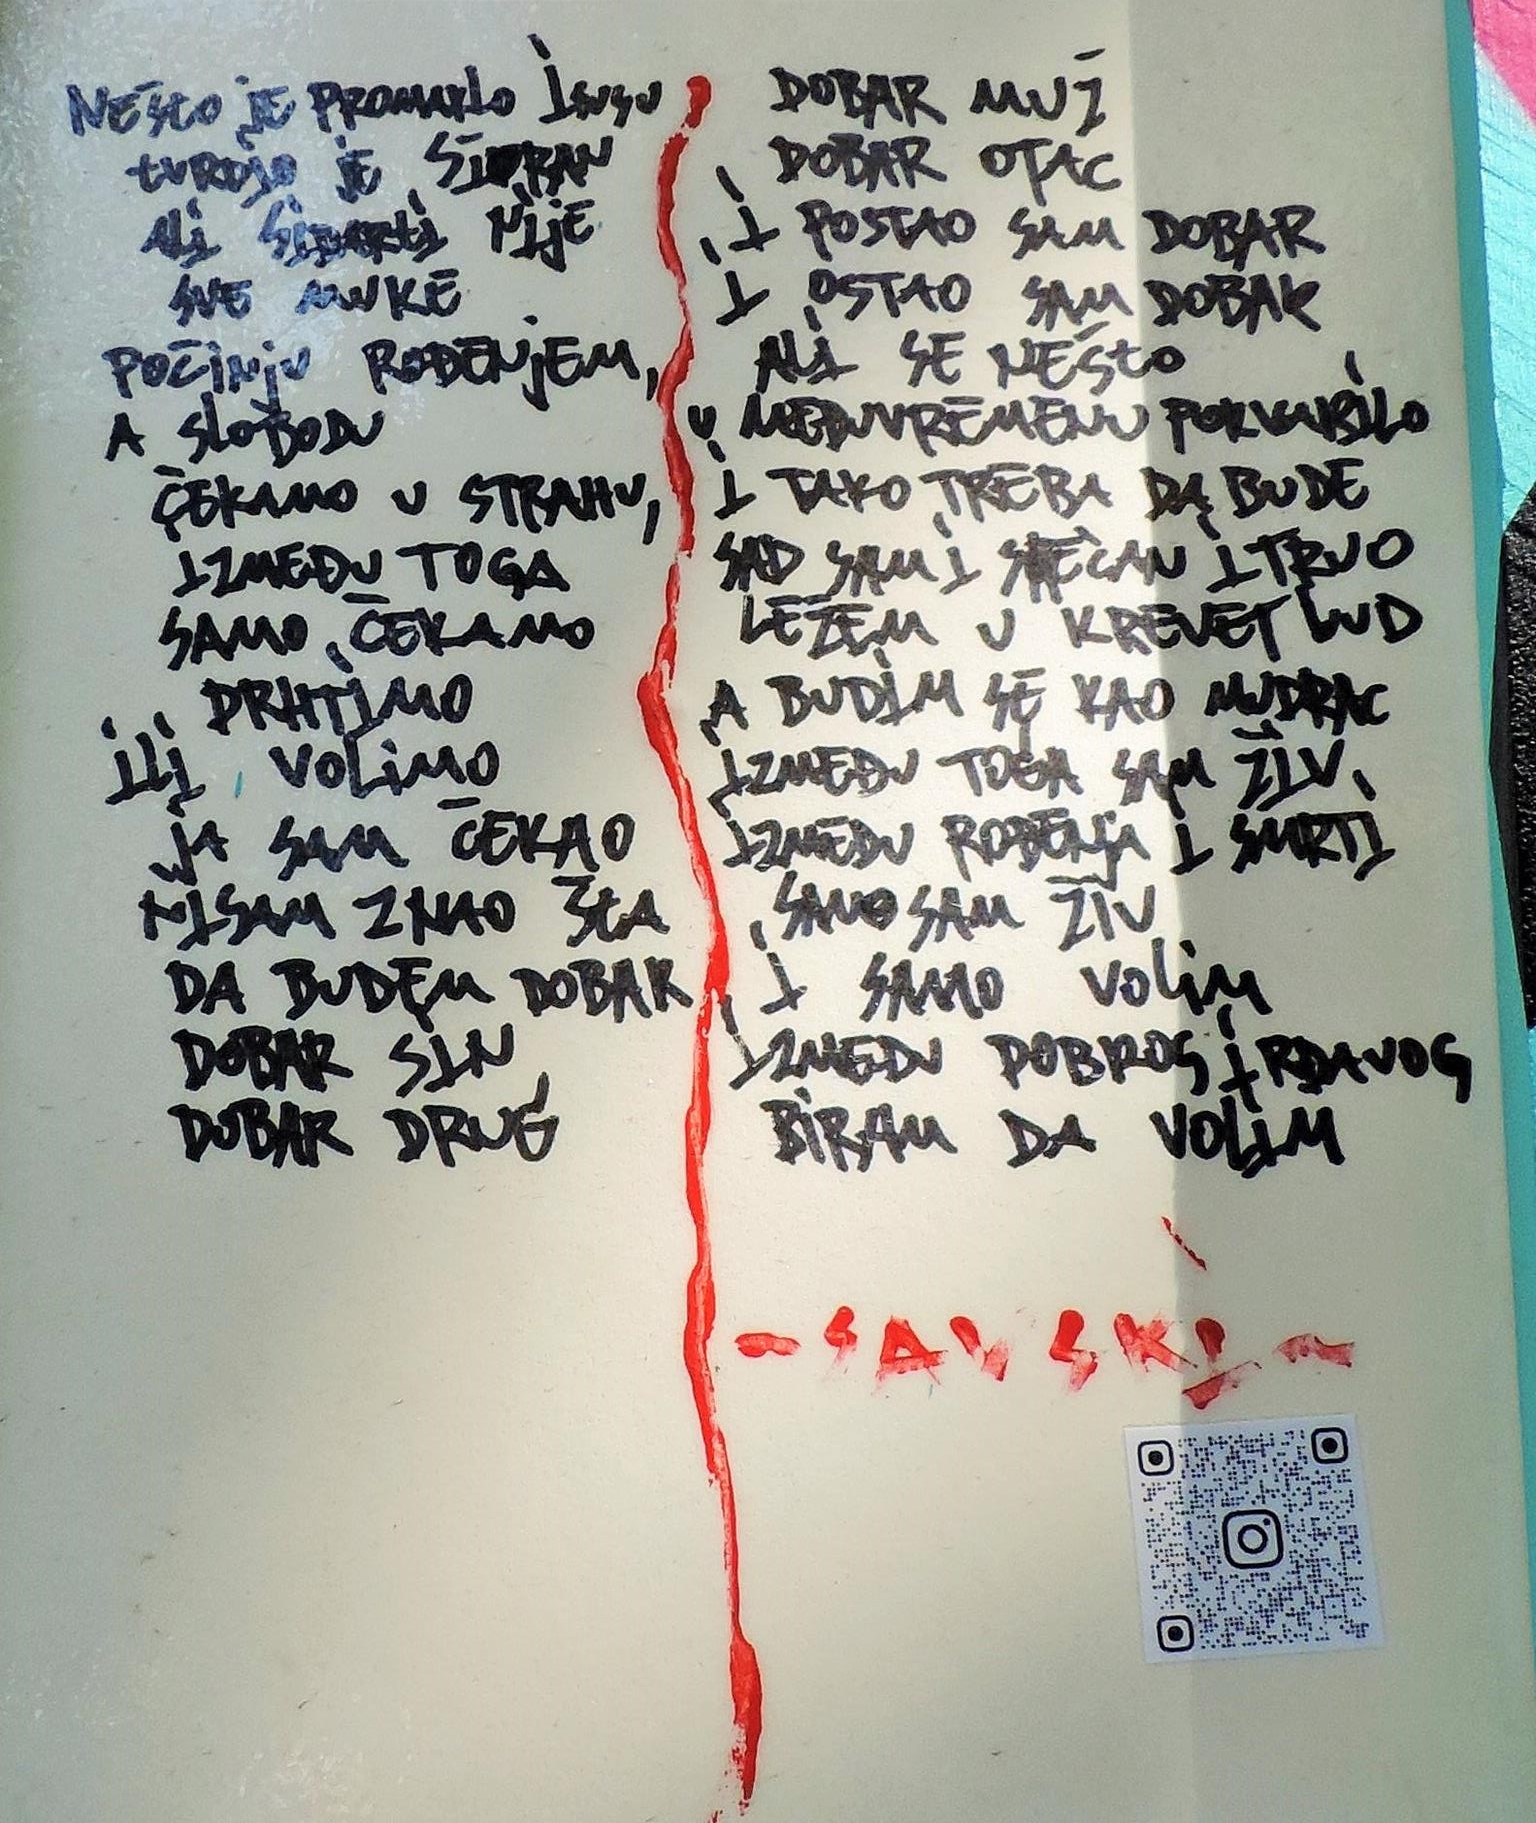 NEŠTO JE PROMAKLO ISUSU
TVRDIO JE ŠIPRAN
ALI SIDARTI NIJE
SVE MUKE
POČINJU ROĐENJEM,
A SLOBODU
ČEKAMO U STRAHU,
IZMEĐU TOGA
SAMO ČEKAMO
DRHTIMO
ILI VOLIMO
JA SAM ČEKAO
NISAM ZNAO ŠTA
DA BUDEM DOBAR
DOBAR SIN
DOBAR DRUG
DOBAR MUŽ
DOBAR OTAC
I POSTAO SAM DOBAR
I OSTAO SAM DOBAR
ALI SE NEŠTO
U MEĐUVREMENU POKVARILO
I TAKO TREBA DA BUDE
SAD SAM I SREĆAN I TRUO
LEŽEM U KREVET LUD
A BUDIM SE KAO MUDRAC
IZMEĐU TOGA SAM ŽIV,
IZMEĐU ROĐENJA I SMRTI
SAMO SAM ŽIV
I SAMO VOLIM
IZMEĐU DOBROG I RĐAVOG
BIRAM DA VOLIM
-SAVSKI-